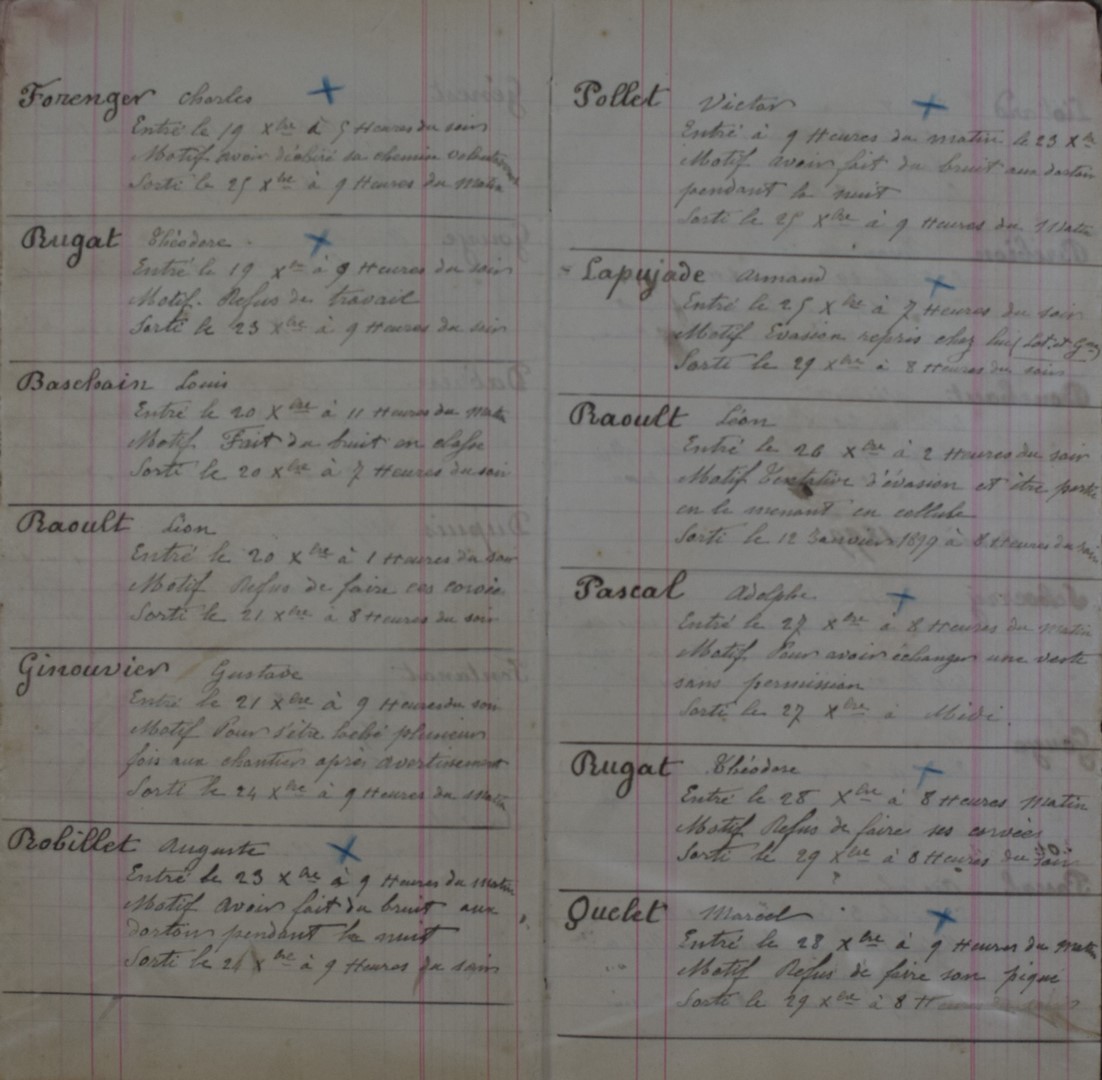 Forenger Charles
Entré le 19 Xbre à 5 Heures du soir
Motif avoir déchiré sa chemise
Sorti le 25 Xbre à 9 Heures du matin
Rugat Théodore
Entré le 19 Xbre à 9 Heures du soir
Motif. Refus de travail
Sorti le 23 Xbre à 9 Heures du soir
Baschain Louis
Entré le 20 Xbre à 11 Heures du matin
Motif Fait du bruit en classe
Sorti le 20 Xbre à 7 Heures du soir
Raoult Léon
Entré le 20 Xbre à 1 Heures du soir
Motif Refus de faire ces corvée
Sorti le 21 Xbre à 8 Heures du soir
Ginouvier Gustave
Entré le 21 Xbre à 9 Heures du soir
Motif Pour s'être plusieur
fois aux chantier après avertissement
Sorti le 24 Xbre à 9 Heures du matin
Robillet Auguste
Entré le 23 Xbre à 9 Heures du matin
Motif Avoir fait du bruit aux
dortoir pendant la nuit
Sorti le Xbre à 9 Heures du soir
Pollet Victor
Entré à 9 Heures du matin le 23 Xbre
Motif avoir fait du bruit aux dortoir
pendant la nuit
Sorti le 25 Xbre à 9 Heures du Matin
Lapujade Armand
Entré le 25 Xbre à 7 Heures du soir
Motif Evasion repris chez lui (Lot et Gne)
Sorti le 29 Xbre à 8 Heures du soir
Raoult Léon
Entré le 26 Xbre à 2 Heures du soir
Motif Tentative d'évasion et être
en le menant en cellule
Sorti le 12 Janvier 1899 à 8 Heures du soir
Pascal Adolphe
Entré le 27 Xbre à 8 Heures du matin
Motif Pour avoir échanger une veste
sans permission
Sorti le 27 Xbre à Midi.
Rugat Théodore
Entré le 28 Xbre à 8 Heures matin
Motif Refus de faire ses corvées
Sorti le 29 Xbre à 8 Heures du soir
Quelet Marcel
Entré le 28 Xbre à 9 Heures du Matin
Motif Refus de faire son piqué
Sorti le 29 Xbre à 8 Heures